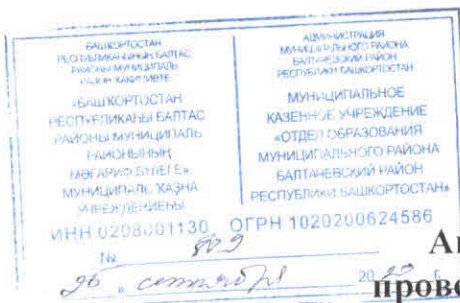 БАШҠОРТОСТАН
РЕСПУБЛИКАҺЫНЫҢ БАЛТАС
РАЙОНЫ МУНИЦИПАЛЬ
РАЙОН ХАКИМИӘТЕ
«БАШҠОРТОСТАН
РЕСПУБЛИКАҺЫ БАЛТАС
РАЙОНЫ МУНИЦИПАЛЬ
РАЙОНЫНЫҢ
МӘҒАРИФ БҮЛЕГЕ»
МУНИЦИПАЛЬ ҠАЗНА
УЧРЕЖДЕНИЕҺЫ
АДМИНИСТРАЦИЯ
МУНИЦИПАЛЬНОГО РАЙОНА
БАЛТАЧЕВСКИЙ РАЙОН
РЕСПУБЛИКИ БАШКОРТОСТАН
МУНИЦИПАЛЬНОЕ
КАЗЕННОЕ УЧРЕЖДЕНИЕ
«ОТДЕЛ ОБРАЗОВАНИЯ
МУНИЦИПАЛЬНОГО РАЙОНА
БАЛТАЧЕВСКИЙ РАЙОН
РЕСПУБЛИКИ БАШКОРТОСТАН»
ИНН 0208001130 ОГРН 1020200624586
№ 809
" сентября 20 г.
прове